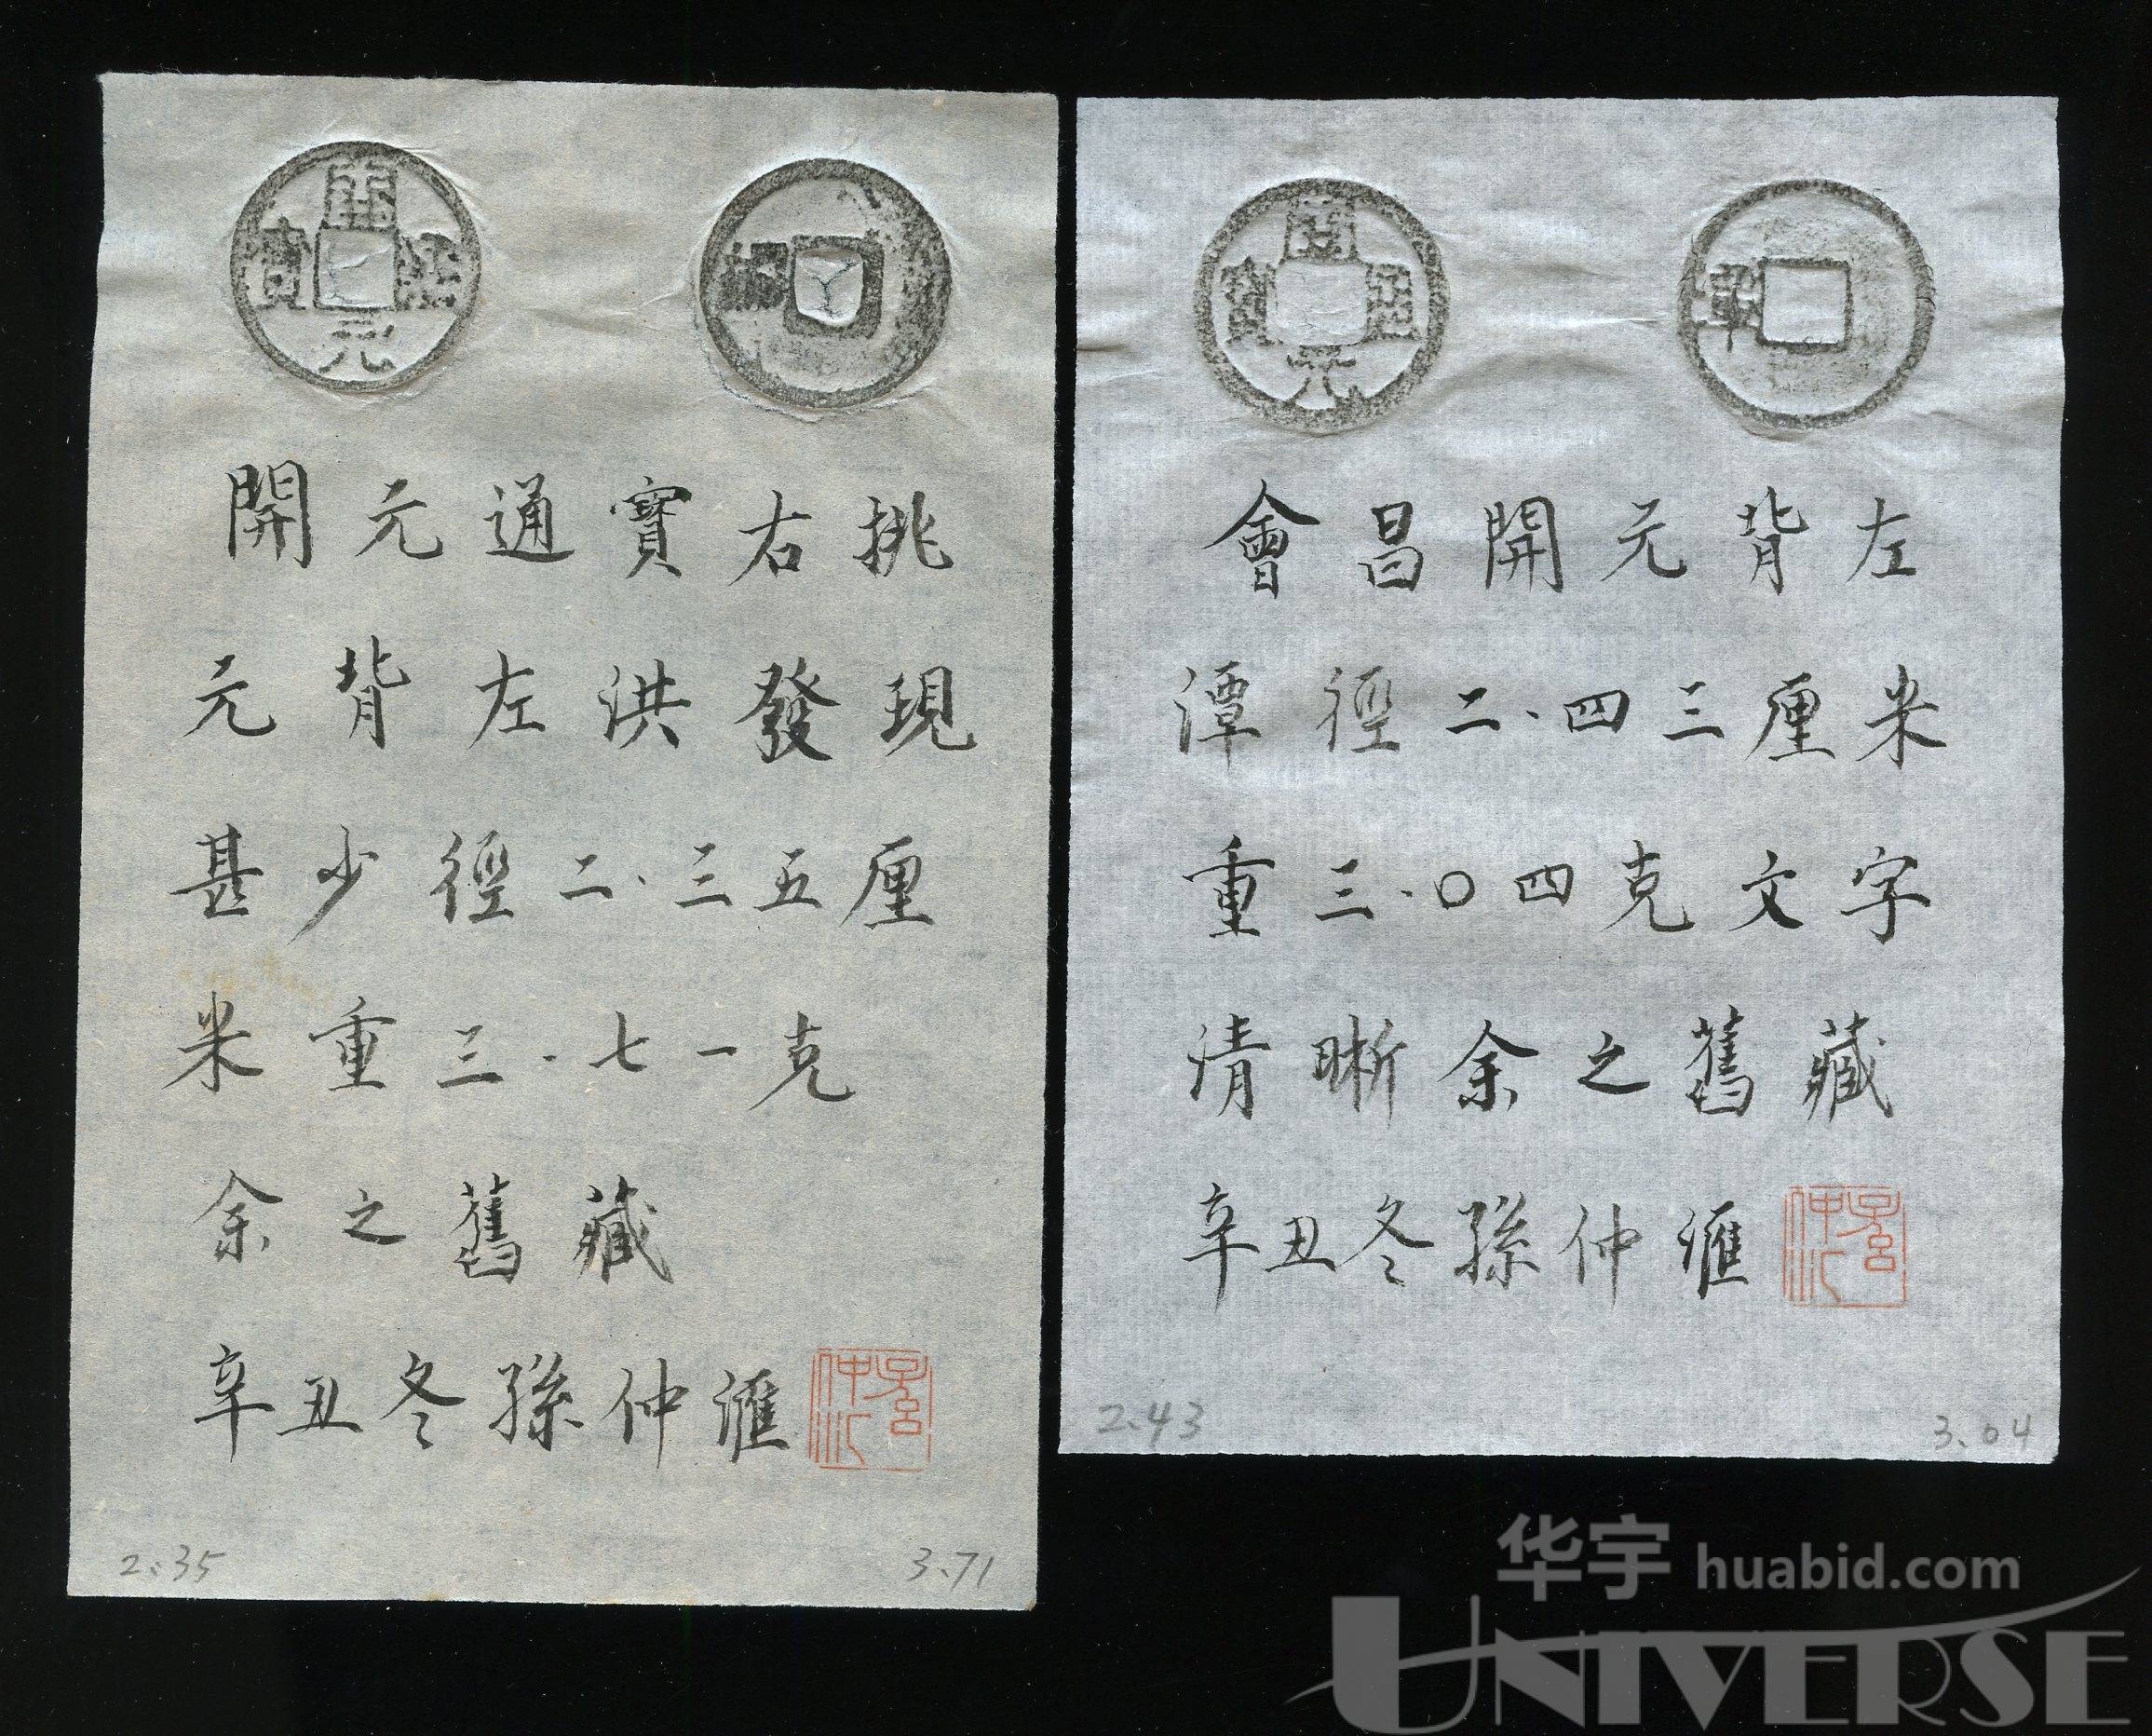 開元通寳
洪
開元通寳右挑
元背左洪發現
甚少徑二.三五厘
米重三.七一克
余之舊藏
辛丑冬孫仲滙
孫仲汇
2.35
3.71
開元通寶
潭
會昌開元背左
潭徑二.四三厘米
重三.〇四克文字
清晰余之舊藏
辛丑冬孫仲滙
孫仲汇
2.43
3.04
华宇 huabid.com
UNIVERSE